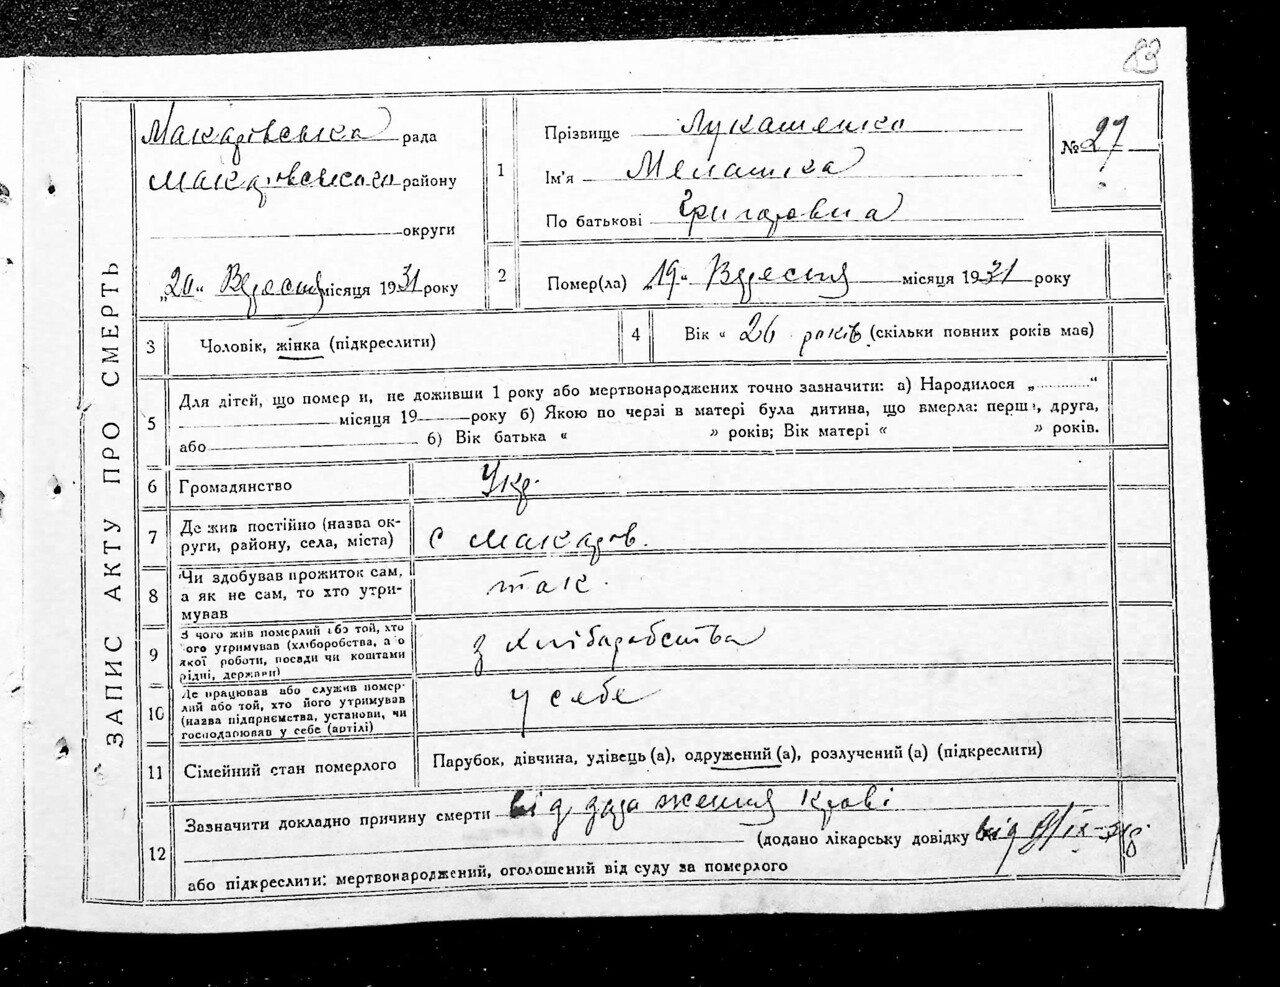 83
ЗАПИС АКТУ ПРО СМЕРТЬ
Макарівська рада
Макарівського району
округи
„20“ Вересня місяця 1931 року
1
Прізвище Лукашенко
Ім'я Мелашка
По батькові Григоровна
№ 27
2
Помер(ла) „19“ Вересня місяця 1931 року
3
Чоловік, жінка (підкреслити)
4
Вік « 26 років (скільки повних років має)
5
Для дітей, що помер и, не доживши 1 року або мертвонароджених точно зазначити: а) Народилося „ “
місяця 19 року б) Якою по черзі в матері була дитина, що вмерла: перш, друга,
або б) Вік батька « » років; Вік матері « » років.
6
Громадянство
Укр.
7
Де жив постійно (назва ок-
руги, району, села, міста)
с Макаров.
8
Чи здобував прожиток сам,
а як не сам, то хто утри-
мував
так.
9
З чого жив померлий або той, хто
ого утримував (хліборобства, а о
якої роботи, посади чи коштами
рідні, держави)
з хліборобства
10
Де працював або служив помер-
лий або той, хто його утримував
(назва підприємства, установи, чи
господарював у себе (артілі)
у себе
11
Сімейний стан померлого
Парубок, дівчина, удівець (а), одружений (а), розлучений (а) (підкреслити)
12
Зазначити докладно причину смерти від зараження крові
(додано лікарську довідку від /IX-31р.
або підкреслити: мертвонароджений, оголошений від суду за померлого